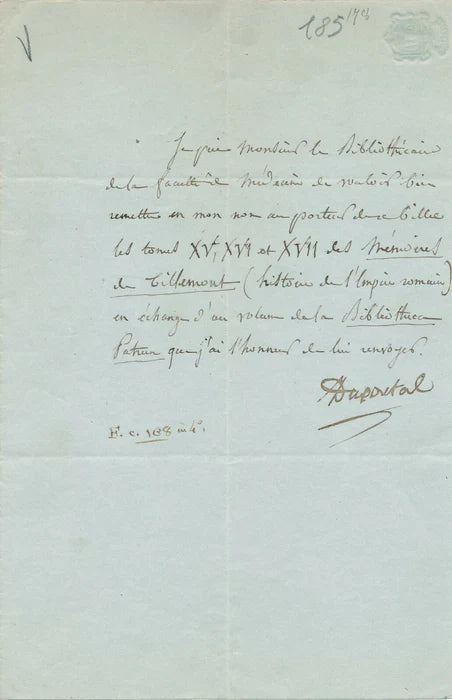 185
Je prie Monsieur le Bibliothécaire
de la faculté de Médecine de vouloir bien
remettre en mon nom au porteur de ce billet
les tomes XV, XVI et XVII des Mémoires
de Tillemont (histoire de l'Empire romain)
en échange d'un volume de la Bibliotheca
Patrum que j'ai l'honneur de lui renvoyer.
Duportal
F. c. 168 in 4°.